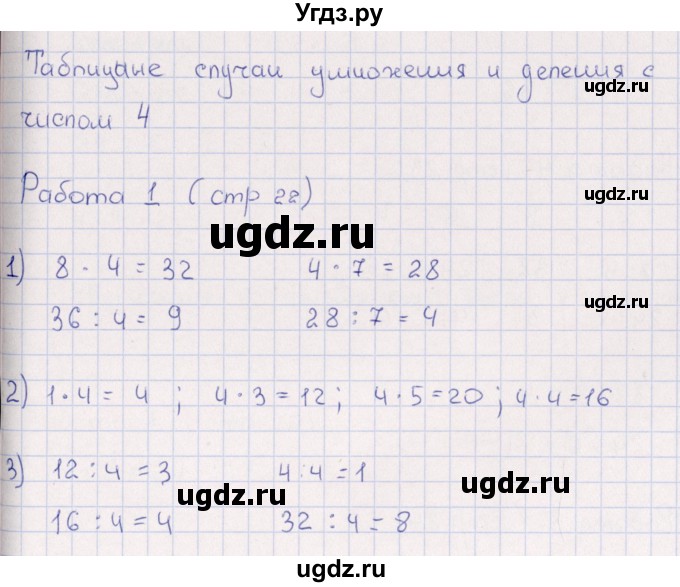 Угдз.ру
Табличные случаи умножения и деления с
ugdz.ru
числом 4
ugdz.ru
Работа 1 (стр 22)
ugdz.ru
ugdz.ru
1) 8 · 4 = 32 4 · 7 = 28
ugdz.ru
36 : 4 = 9 28 : 7 = 4
2) 1 · 4 = 4 ; 4 · 3 = 12 ; 4 · 5 = 20 ; 4 · 4 = 16
ugdz.ru
3) 12 : 4 = 3 4 : 4 = 1
ugdz.ru
ugdz.ru
16 : 4 = 4 32 : 4 = 8
ugdz.ru
ugdz.ru